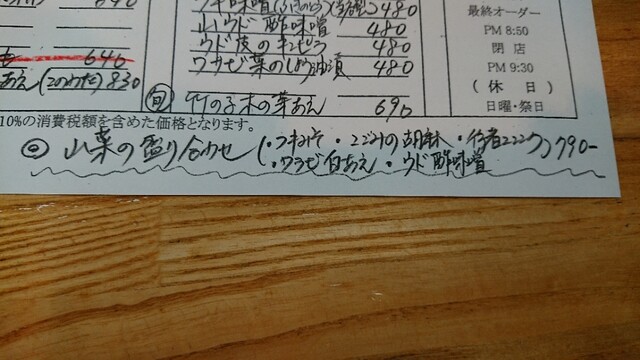 640
あえ(このわた) 830
フキ味噌(ふきのとう)(当店製) 480
山ウド 酢味噌 480
ウド皮のキンピラ 480
ワサビ葉のしょう油漬 480
旬 竹の子木の芽あえ 690
最終オーダー
PM 8:50
閉 店
PM 9:30
( 休 日 )
日曜・祭日
10%の消費税額を含めた価格となります。
◎ 山菜の盛り合わせ (・フキみそ ・コゴミの胡麻 ・行者
・ワラビ白あえ ・ウド酢味噌) 790-